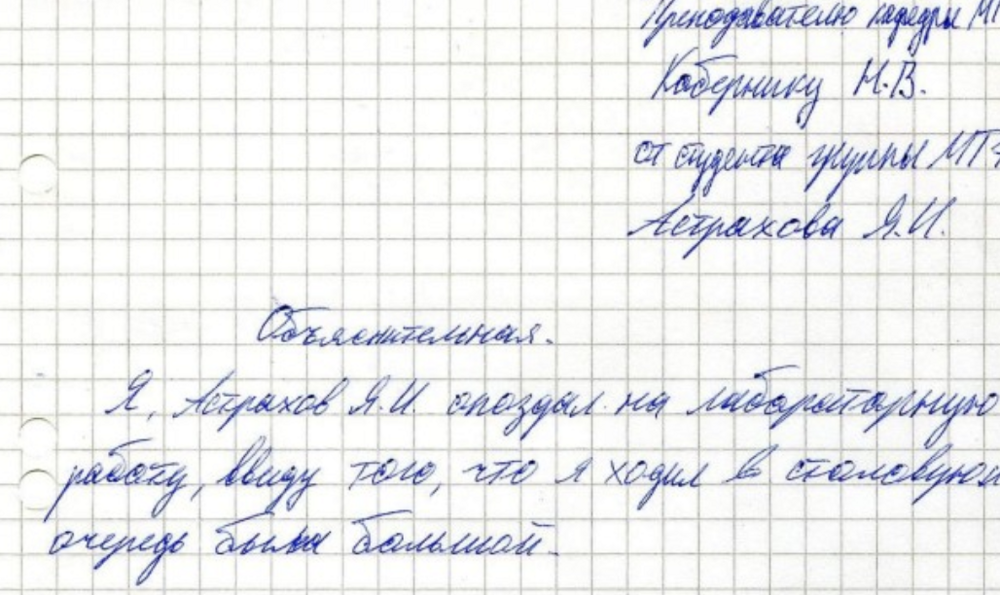 Преподавателю кафедры МТ
Кобернику Н.В.
от студента группы МТ
Астрахова Я.И.
Объяснительная.
Я, Астрахов Я.И. опоздал на лабораторную
работу, ввиду того, что я ходил в столовую
очередь была большой.